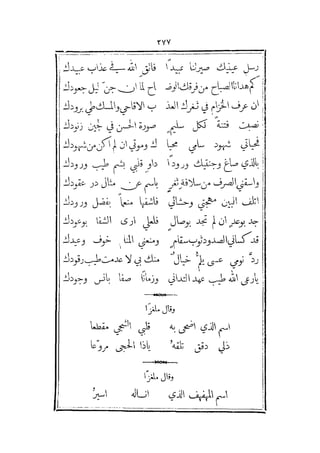 ٢٧٧
رسل عينيك صيرتنا عبيدًا فالق الله في عذاب عبيدك
كم هدانا الصباح من فرقك الوضاح لما ان جن ليل جعودك
ان عرف الخزام في ثغرك العذب الاقاحي والمسك طي برودك
نصبت فتنة لكل سليم صورة الحسن في لجين زنودك
شهود سامي محيا ك وموتي ان لم اكن من شهودك
بالذي صاغ وجنتيك ورودًا داو قلبي بشم طيب ورودك
واسقني الصرف من سلافة ثغر باسم عن مثال در عقودك
اتلف البين مهجتي وحشائي فاشفها منعماً بفضل ورودك
جد بوعد ان لم تجد بوصال فلعلي ارى الشفا بوعودك
قد كساني الصدود ثوب سقام ومنعني المنا خوف وعيدك
ردّ نومي عسى يلم خيال منك بي لا عدمت طيب رقودك
يا رعى الله طيب عهد التداني وزمانًا صفا بانس وجودك
وقال ملغزًا
اسم الذي اضحى به قلبي الشجي مقطعا
ذلي دقق تلقه ياذا الحجى مروّعا
وقال ملغزًا
اسم المهفهف الذي انساله اسير